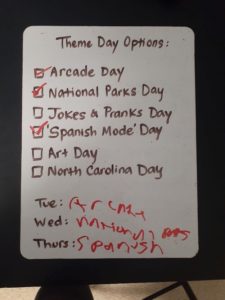 Theme Day Options:
Arcade Day
National Parks Day
Jokes & Pranks Day
'Spanish Mode' Day
Art Day
North Carolina Day
Tue: Arcade
Wed: National
Thurs: Spanish